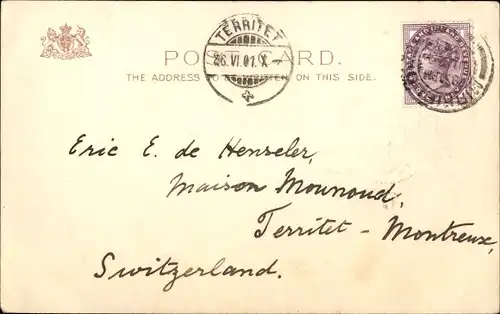 TERRITET
26.VI.01.X
POST CARD.
THE ADDRESS TO BE WRITTEN ON THIS SIDE.
Eric E. de Henseler,
Maison Mounoud,
Territet - Montreux,
Switzerland.